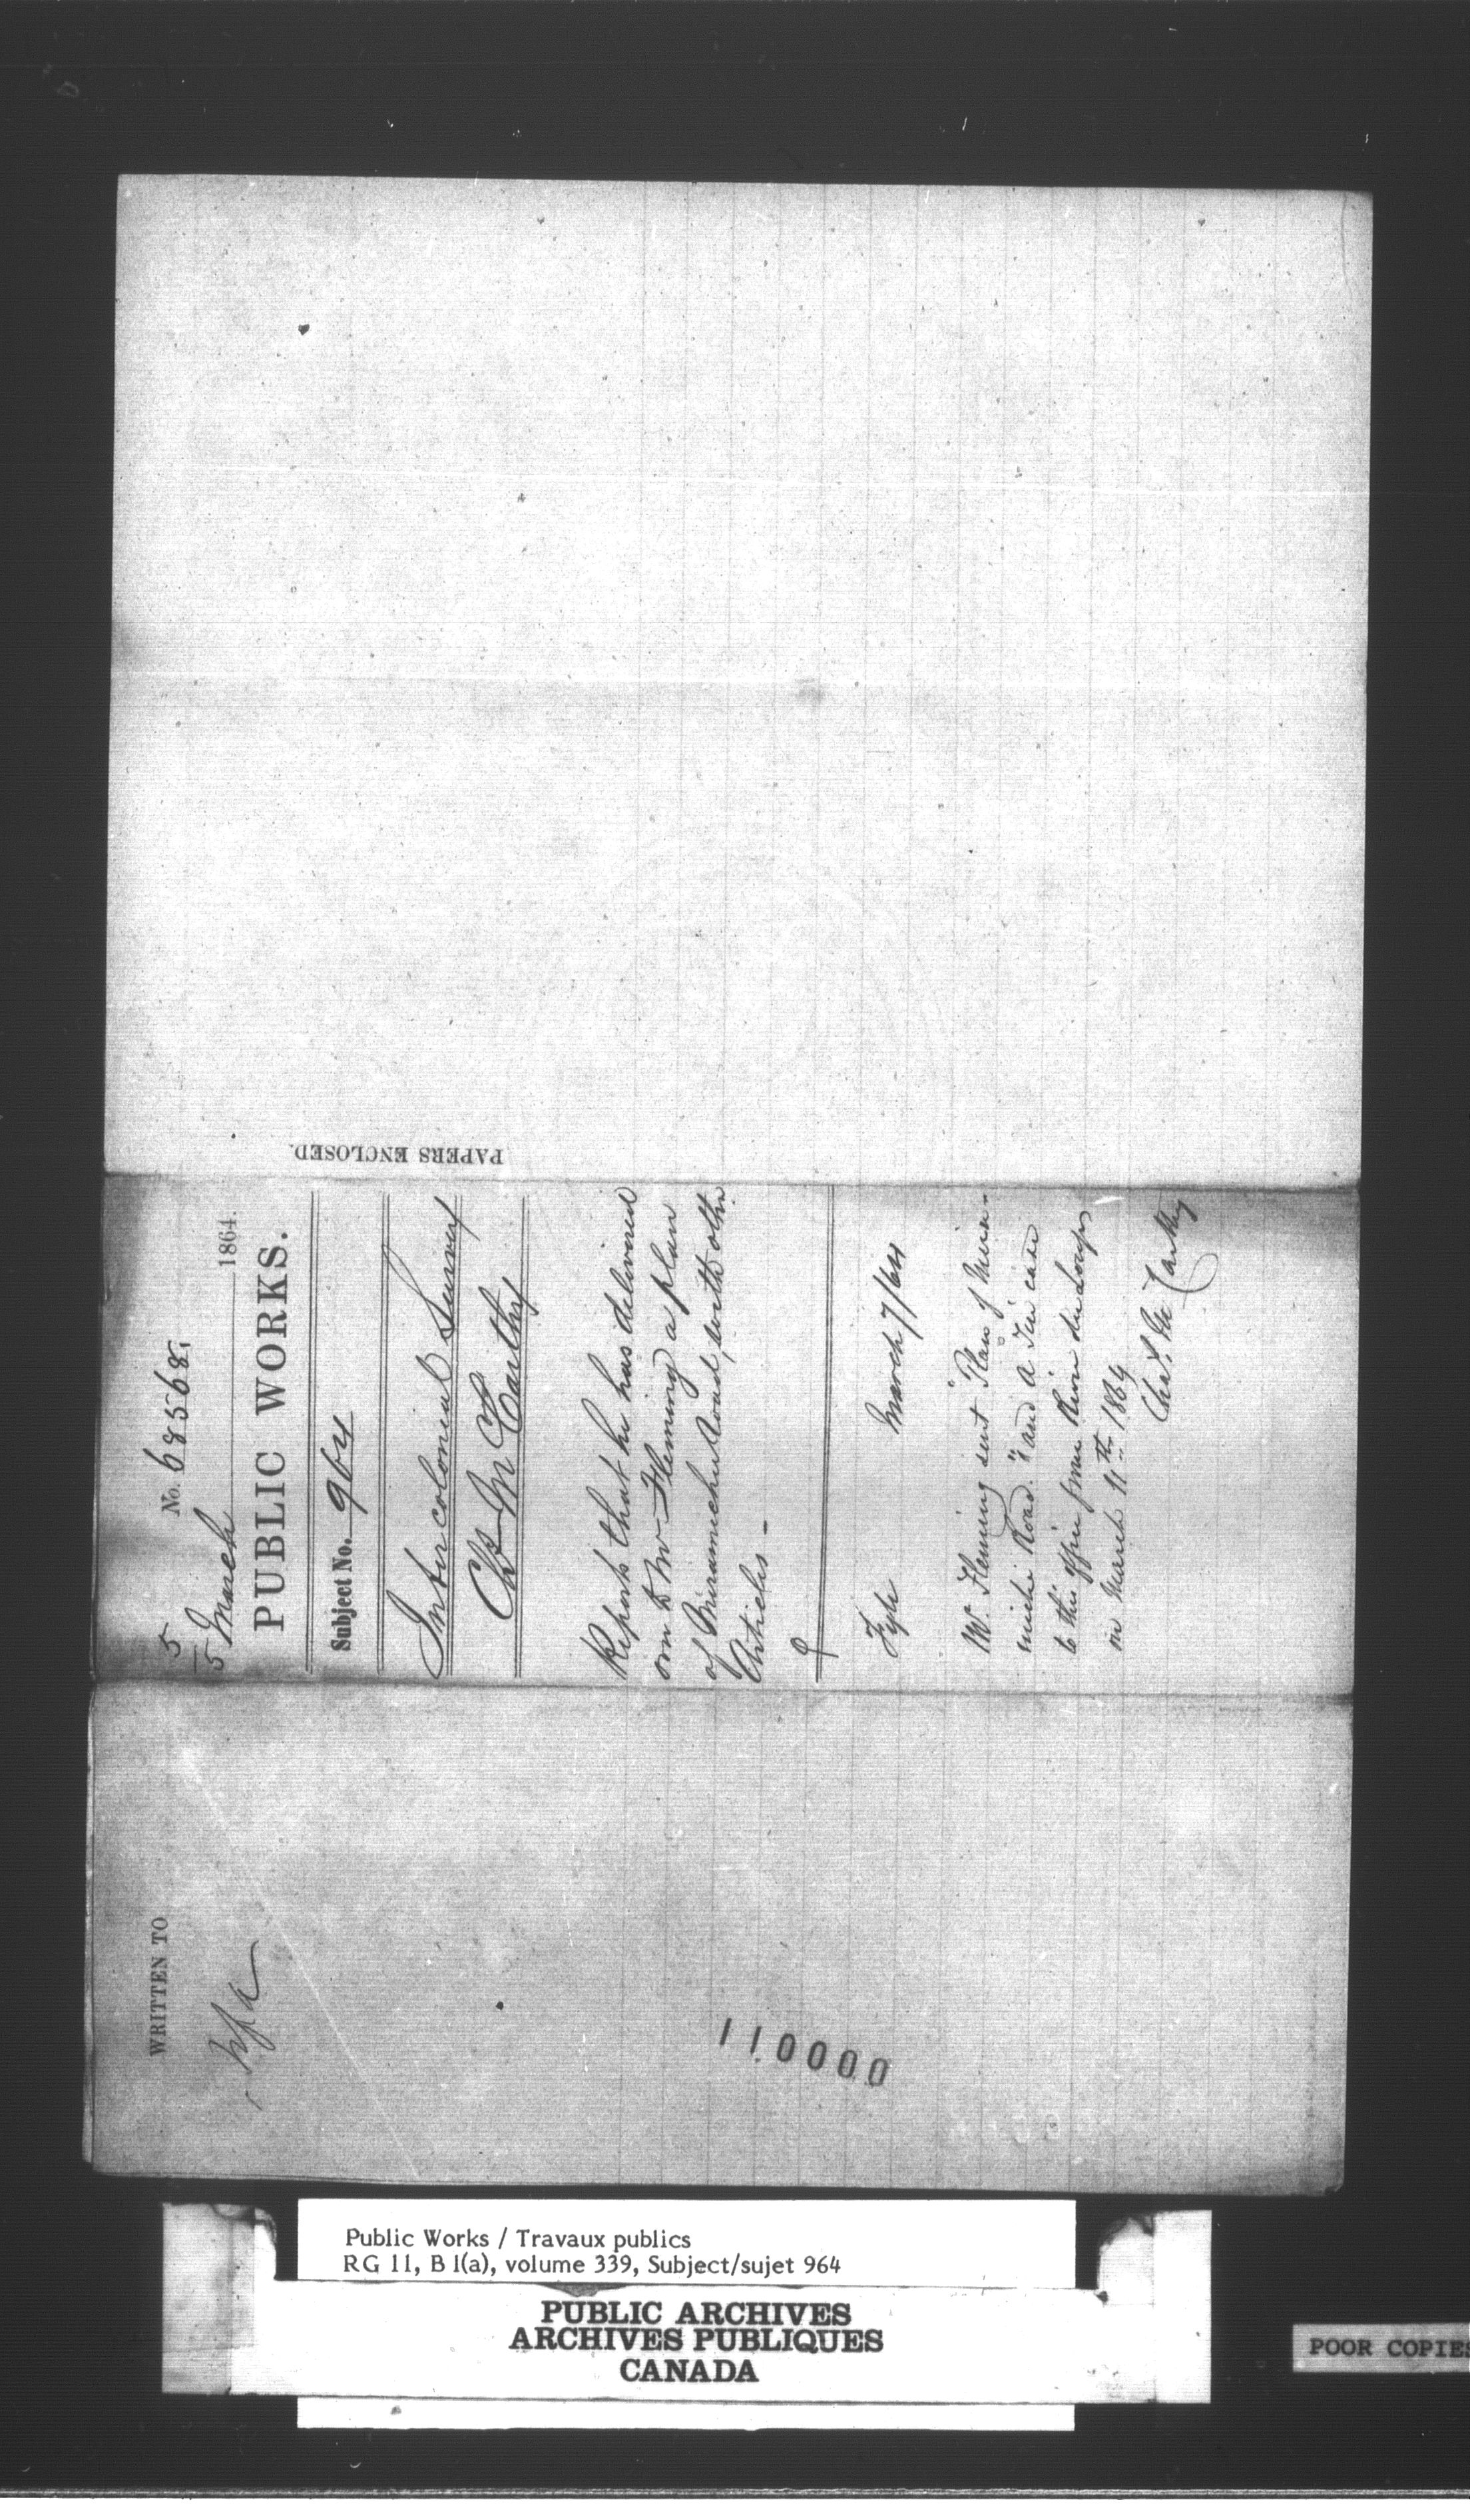 PAPERS ENCLOSED.
No. 68568.
5
5 March 1864.
PUBLIC WORKS.
Subject No. 964
Intercolonial Survey
Chs McCarthy
Reports that he has delivered
over to Mr Fleming a plan
of Miramichi Road, with other
Articles -
Fyle March 7/64
Mr. Fleming sent "Plan of Mira-
michi Road." and a Tin case
to this office from River du Loup
on March 11th 1864
Chas. McCarthy
WRITTEN TO
110000
Public Works / Travaux publics
RG 11, B 1(a), volume 339, Subject/sujet 964
PUBLIC ARCHIVES
ARCHIVES PUBLIQUES
CANADA
POOR COPIES